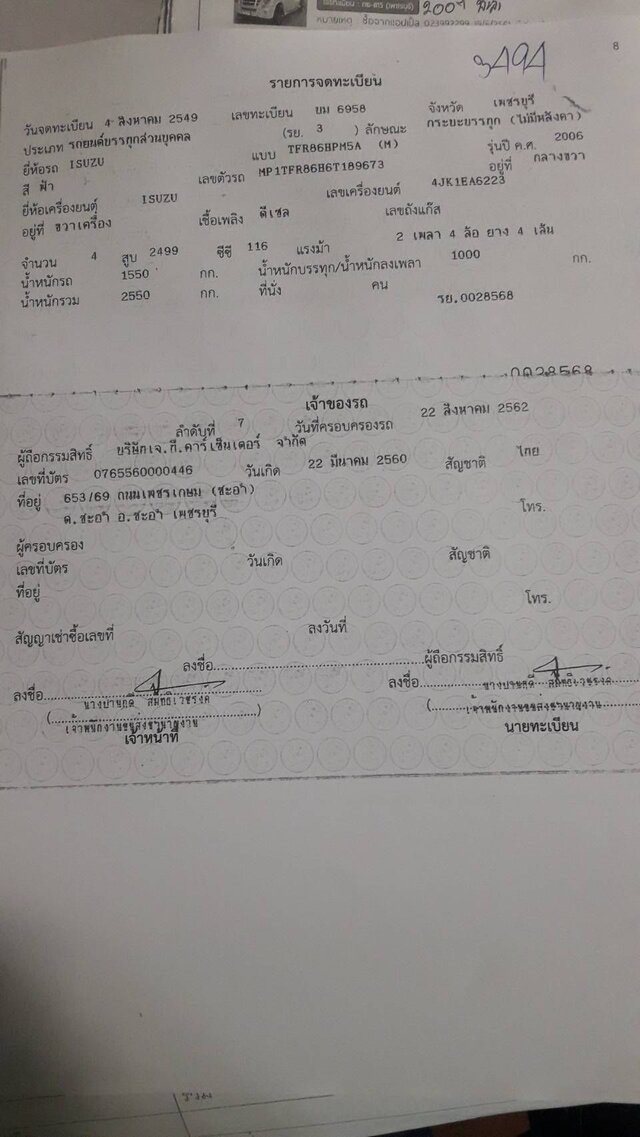 2009
หมายเหตุ ซื้อจากแอปเปิ้ล
8
รายการจดทะเบียน
วันจดทะเบียน 4 สิงหาคม 2549 เลขทะเบียน บม 6958 จังหวัด เพชรบุรี
ประเภท รถยนต์บรรทุกส่วนบุคคล (รย. 3 ) ลักษณะ กระบะบรรทุก (ไม่มีหลังคา)
ยี่ห้อรถ ISUZU แบบ TFR86HPM5A (M) รุ่นปี ค.ศ. 2006
สี ฟ้า เลขตัวรถ MP1TFR86H6T189673 อยู่ที่ กลางขวา
ยี่ห้อเครื่องยนต์ ISUZU เลขเครื่องยนต์ 4JK1EA6223
อยู่ที่ ขวาเครื่อง เชื้อเพลิง ดีเซล เลขถังแก๊ส
จำนวน 4 สูบ 2499 ซีซี 116 แรงม้า 2 เพลา 4 ล้อ ยาง 4 เส้น
น้ำหนักรถ 1550 กก. น้ำหนักบรรทุก/น้ำหนักลงเพลา 1000 กก.
น้ำหนักรวม 2550 กก. ที่นั่ง คน
รย.0028568
0028568
เจ้าของรถ
ลำดับที่ 7 วันที่ครอบครองรถ 22 สิงหาคม 2562
ผู้ถือกรรมสิทธิ์ บริษัทเจ.ที.คาร์เซ็นเตอร์ จำกัด
เลขที่บัตร 0765560000446 วันเกิด 22 มีนาคม 2560 สัญชาติ ไทย
ที่อยู่ 653/69 ถนนเพชรเกษม (ชะอำ)
ต.ชะอำ อ.ชะอำ เพชรบุรี โทร.
ผู้ครอบครอง
เลขที่บัตร วันเกิด สัญชาติ
ที่อยู่
โทร.
สัญญาเช่าซื้อเลขที่ ลงวันที่
ลงชื่อ ผู้ถือกรรมสิทธิ์
ลงชื่อ ลงชื่อ
เจ้าพนักงานขนส่งชำนาญงาน เจ้าพนักงานขนส่งชำนาญงาน
เจ้าหน้าที่ นายทะเบียน